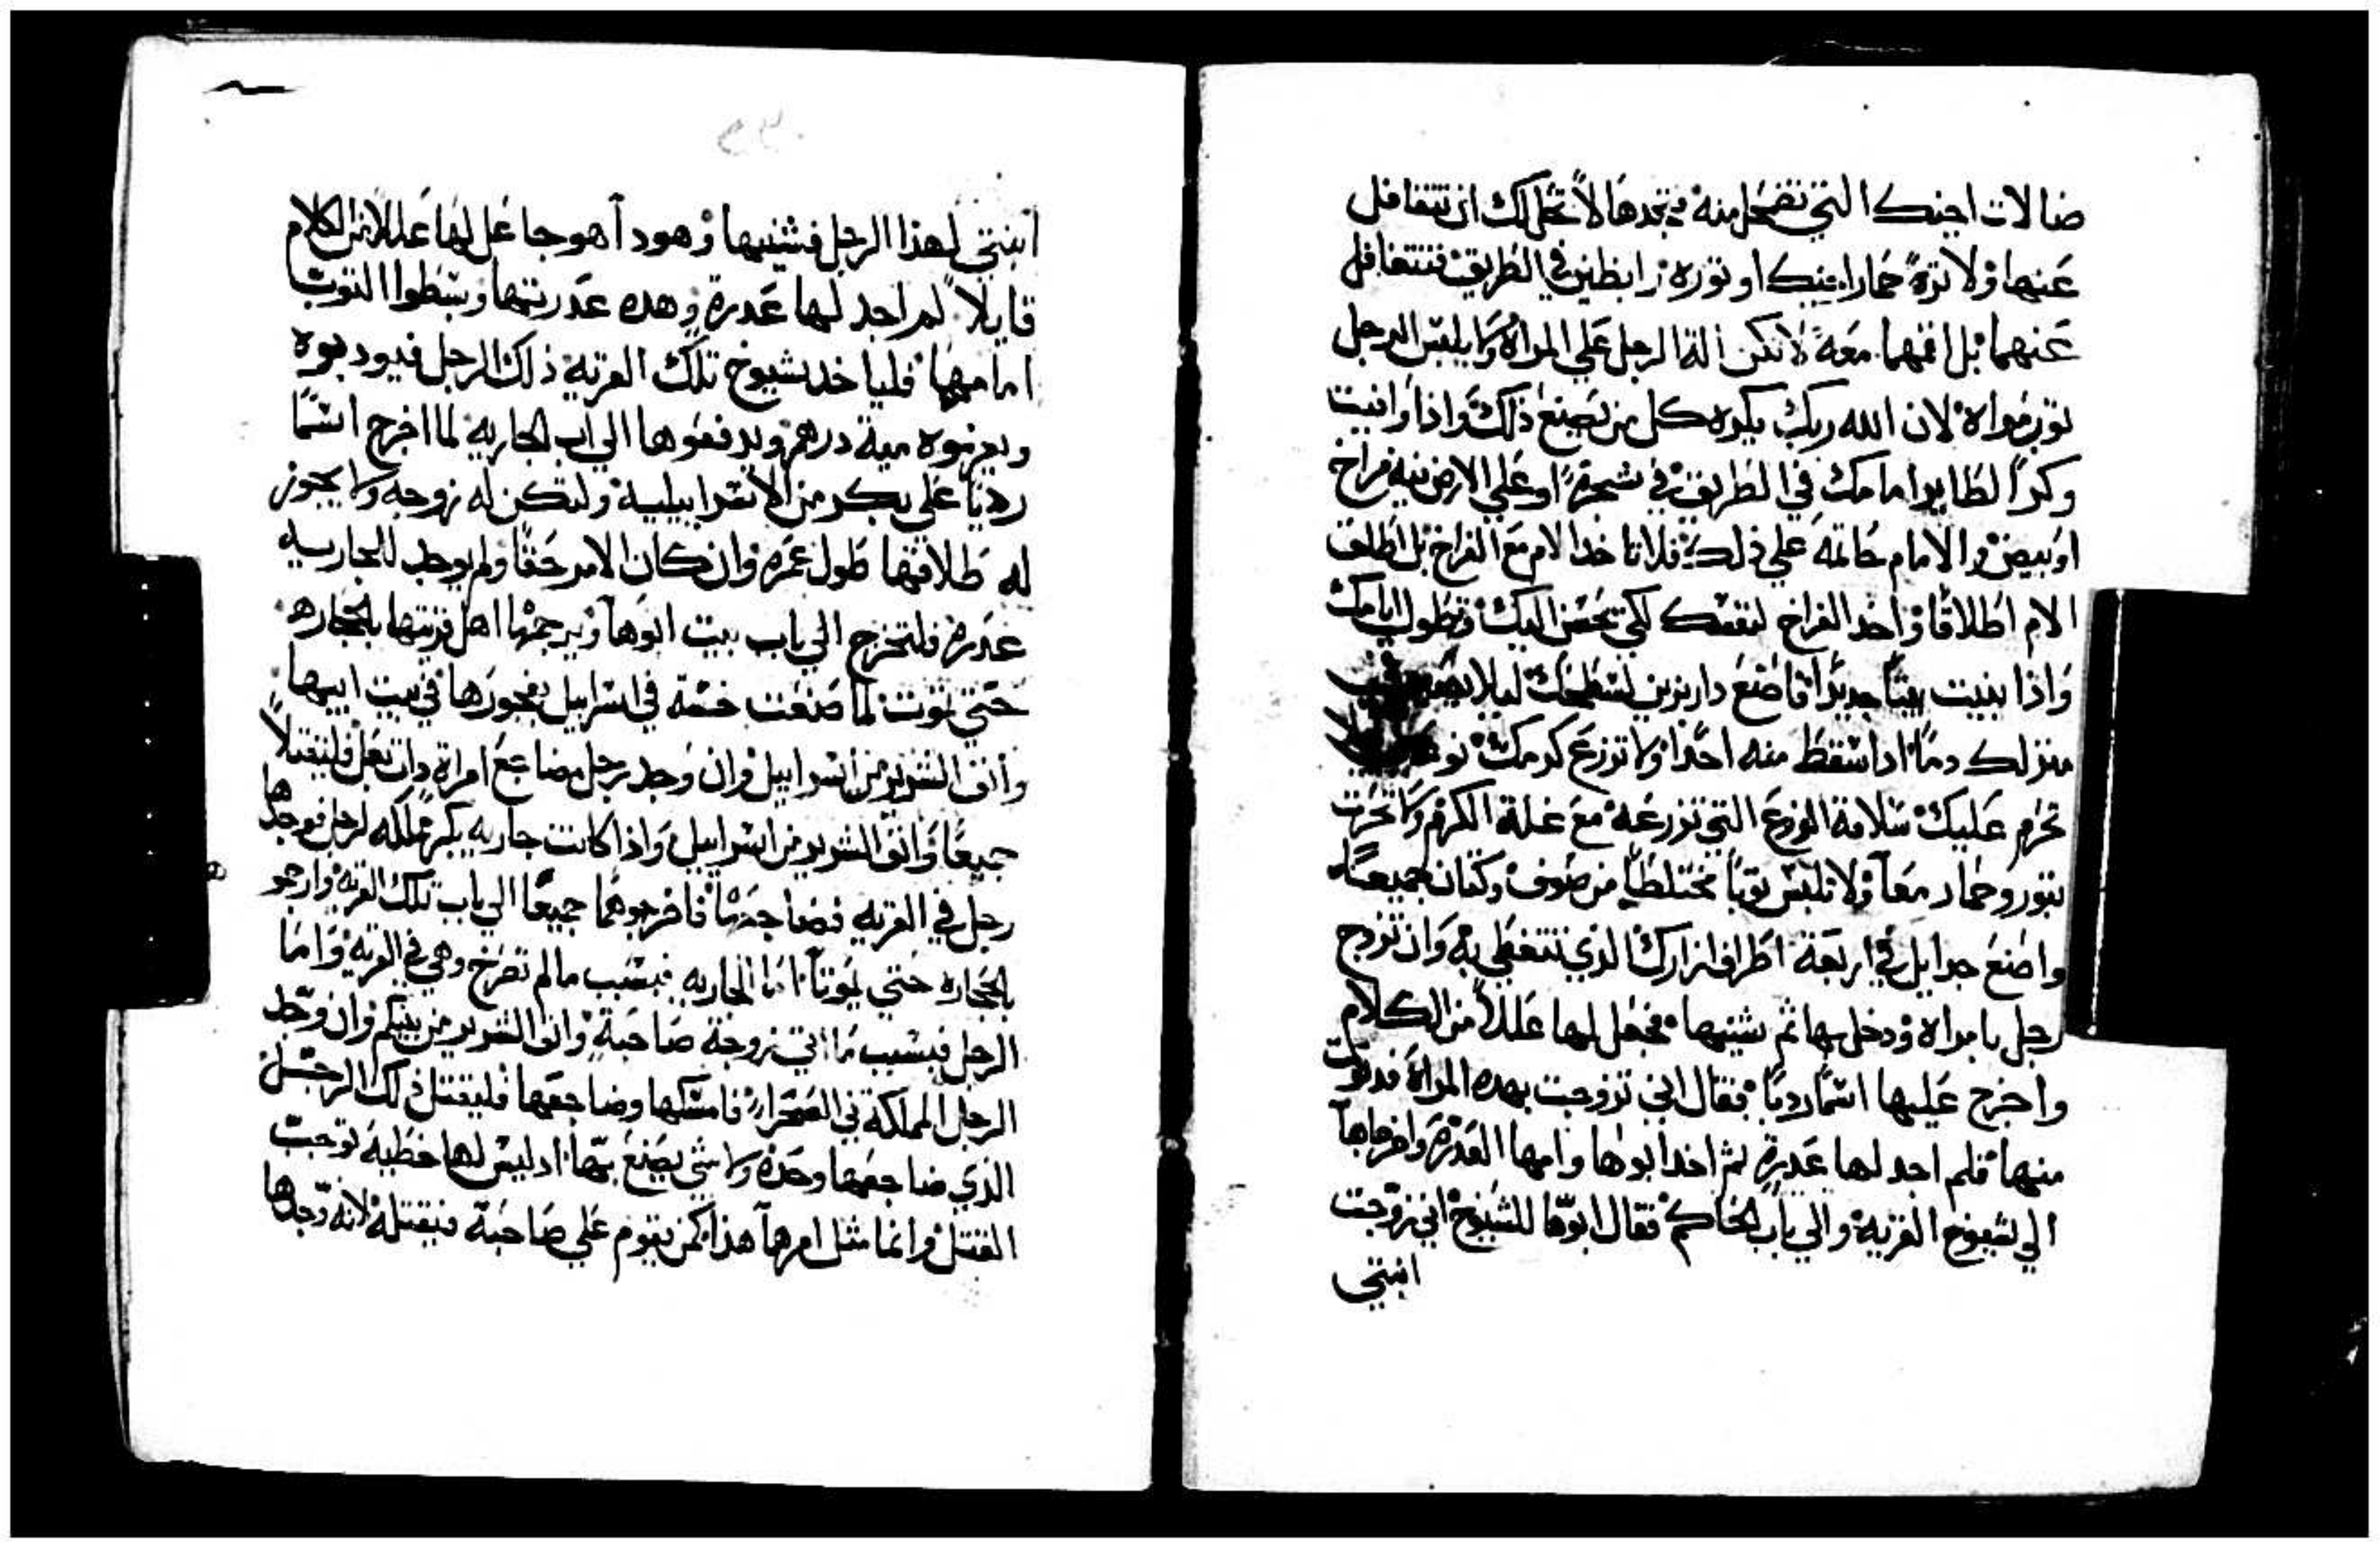 ضالات اخيك التي تفضل منه فتجدها لا تحل لك ان تتغافل
عنها ولا تره حمار اخيك او توره رابظين في الطريق فتتغافل
عنهما بل اقمهما معه لا تكن الة الرجل علي المراه ولا يلبس الرجل
توب مراه لان الله ربك يكره كل من يصنع ذلك واذا وافيت
وكر الطاير امامك في الطريق في شجرة او علي الارض فيه فراخ
او بيض والامام حاتمه علي ذلك فلا تاخد الام مع الفراخ بل اطلق
الام اطلاقا واخد الفراخ لنفسك لكي يحسن اليك وتطول ايامك
واذا بنيت بيتا جديدا فاصنع داربزين لسطحك ليلا
منزلك دما ادا سقط منه احدا ولا تزرع كرمك
تحرم عليك سلافة الزرع التي تزرعه مع غلة الكرم ولا تحرت
بتور وحمار معا ولا تلبس توبا مختلطا من صوف وكتان جميعا
واصنع جدايل في اربعة اطراف ازارك الذي تتغطي به وان تزوج
رجل بامراه ودخل بها ثم يشنيها فجعل لها عللا من الكلام
واخرج عليها اسما رديا فقال اني تزوجت بهده المراه فدنوت
منها فلم اجد لها عدرة ثم اخد ابوها وامها العدره واخرجاها
الي شيوخ القريه والي باب الحاكم فقال ابوها للشيوخ اني زوجت
ابنتي
ابنتي لهذا الرجل فشنيها وهودا هو جاعل لها عللا من الكلام
قايلا لم اجد لها عدرة وهده عدريتها وبسطوا التوب
امامها فلياخد شيوخ تلك القريه ذلك الرجل فيودبوه
ويغرموه مية درهم ويدفعوها الي اب الجاريه لما اخرج اسما
رديا علي بكر من الاسراييلية ولتكن له زوجه ولا يجوز
له طلاقها طول عمره وان كان الامر حقا ولم يوجد للجاريه
عدره فلتخرج الي باب بيت ابوها ويرجمها اهل قريتها بالحجاره
حتي تموت لما صنعت خسة في اسراييل بفجورها في بيت ابيها
وانف الشرير من اسراييل وان وجد رجل مضاجع امراة دات بعل فليقتلا
جميعا وانف الشرير من اسراييل واذا كانت جاريه بكر مملكه لرجل فوجدها
رجل في القريه فضاجعها فاخرجوهما جميعا الي باب تلك القريه وارجموهما
بالحجاره حتي يموتا اما الجاريه فبسبب ما لم تصرخ وهي في القريه واما
الرجل فبسبب ما اتي زوجة صاحبة وانف الشرير من بينكم وان وجد
الرجل المملكة في الصحرا فامسكها وضاجعها فليقتل ذلك الرجل
الذي ضاجعها وحده ولا شي يصنع بها اد ليس لها خطية توجب
القتل وانما مثل امرها هذا كمن يقوم علي صاحبة فيقتله لانه وجدها